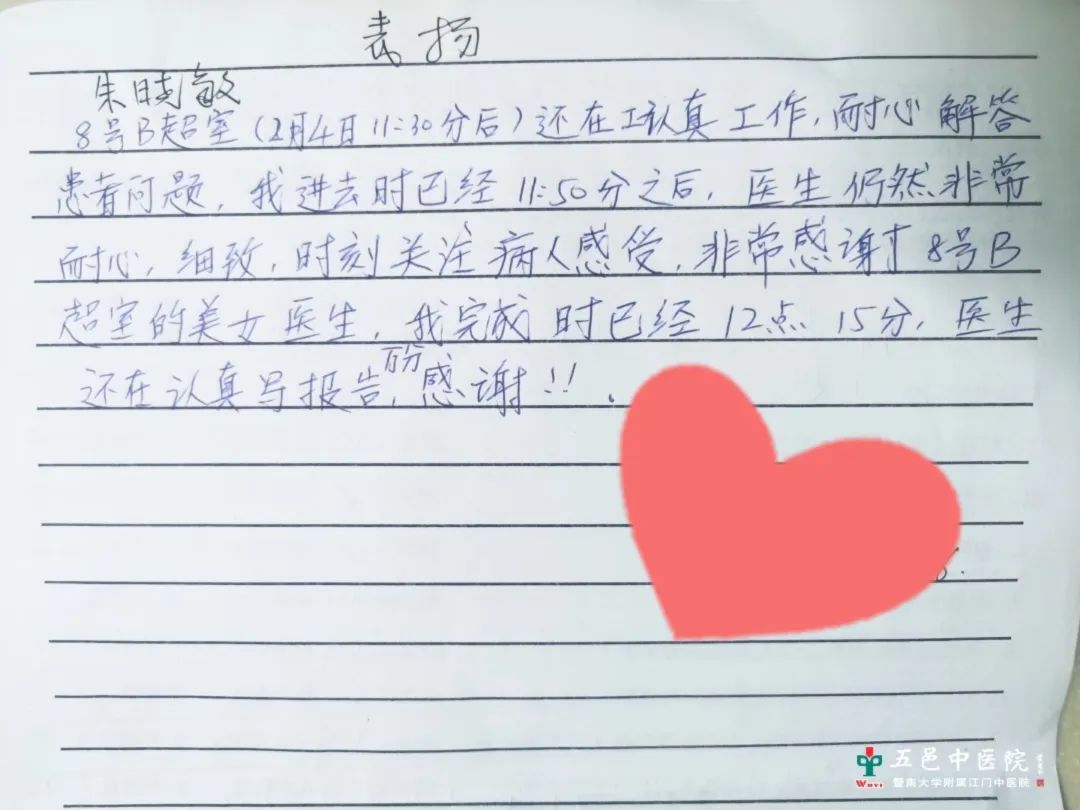 表扬
朱晓敏
8号B超室(2月4日11:30分后)还在工认真工作,耐心解答
患者问题,我进去时已经11:50分之后,医生仍然非常
耐心,细致,时刻关注病人感受,非常感谢8号B
超室的美女医生,我完成时已经12点15分,医生
还在认真写报告,万分感谢!!.
五邑中医院
暨南大学附属江门中医院
WUYI